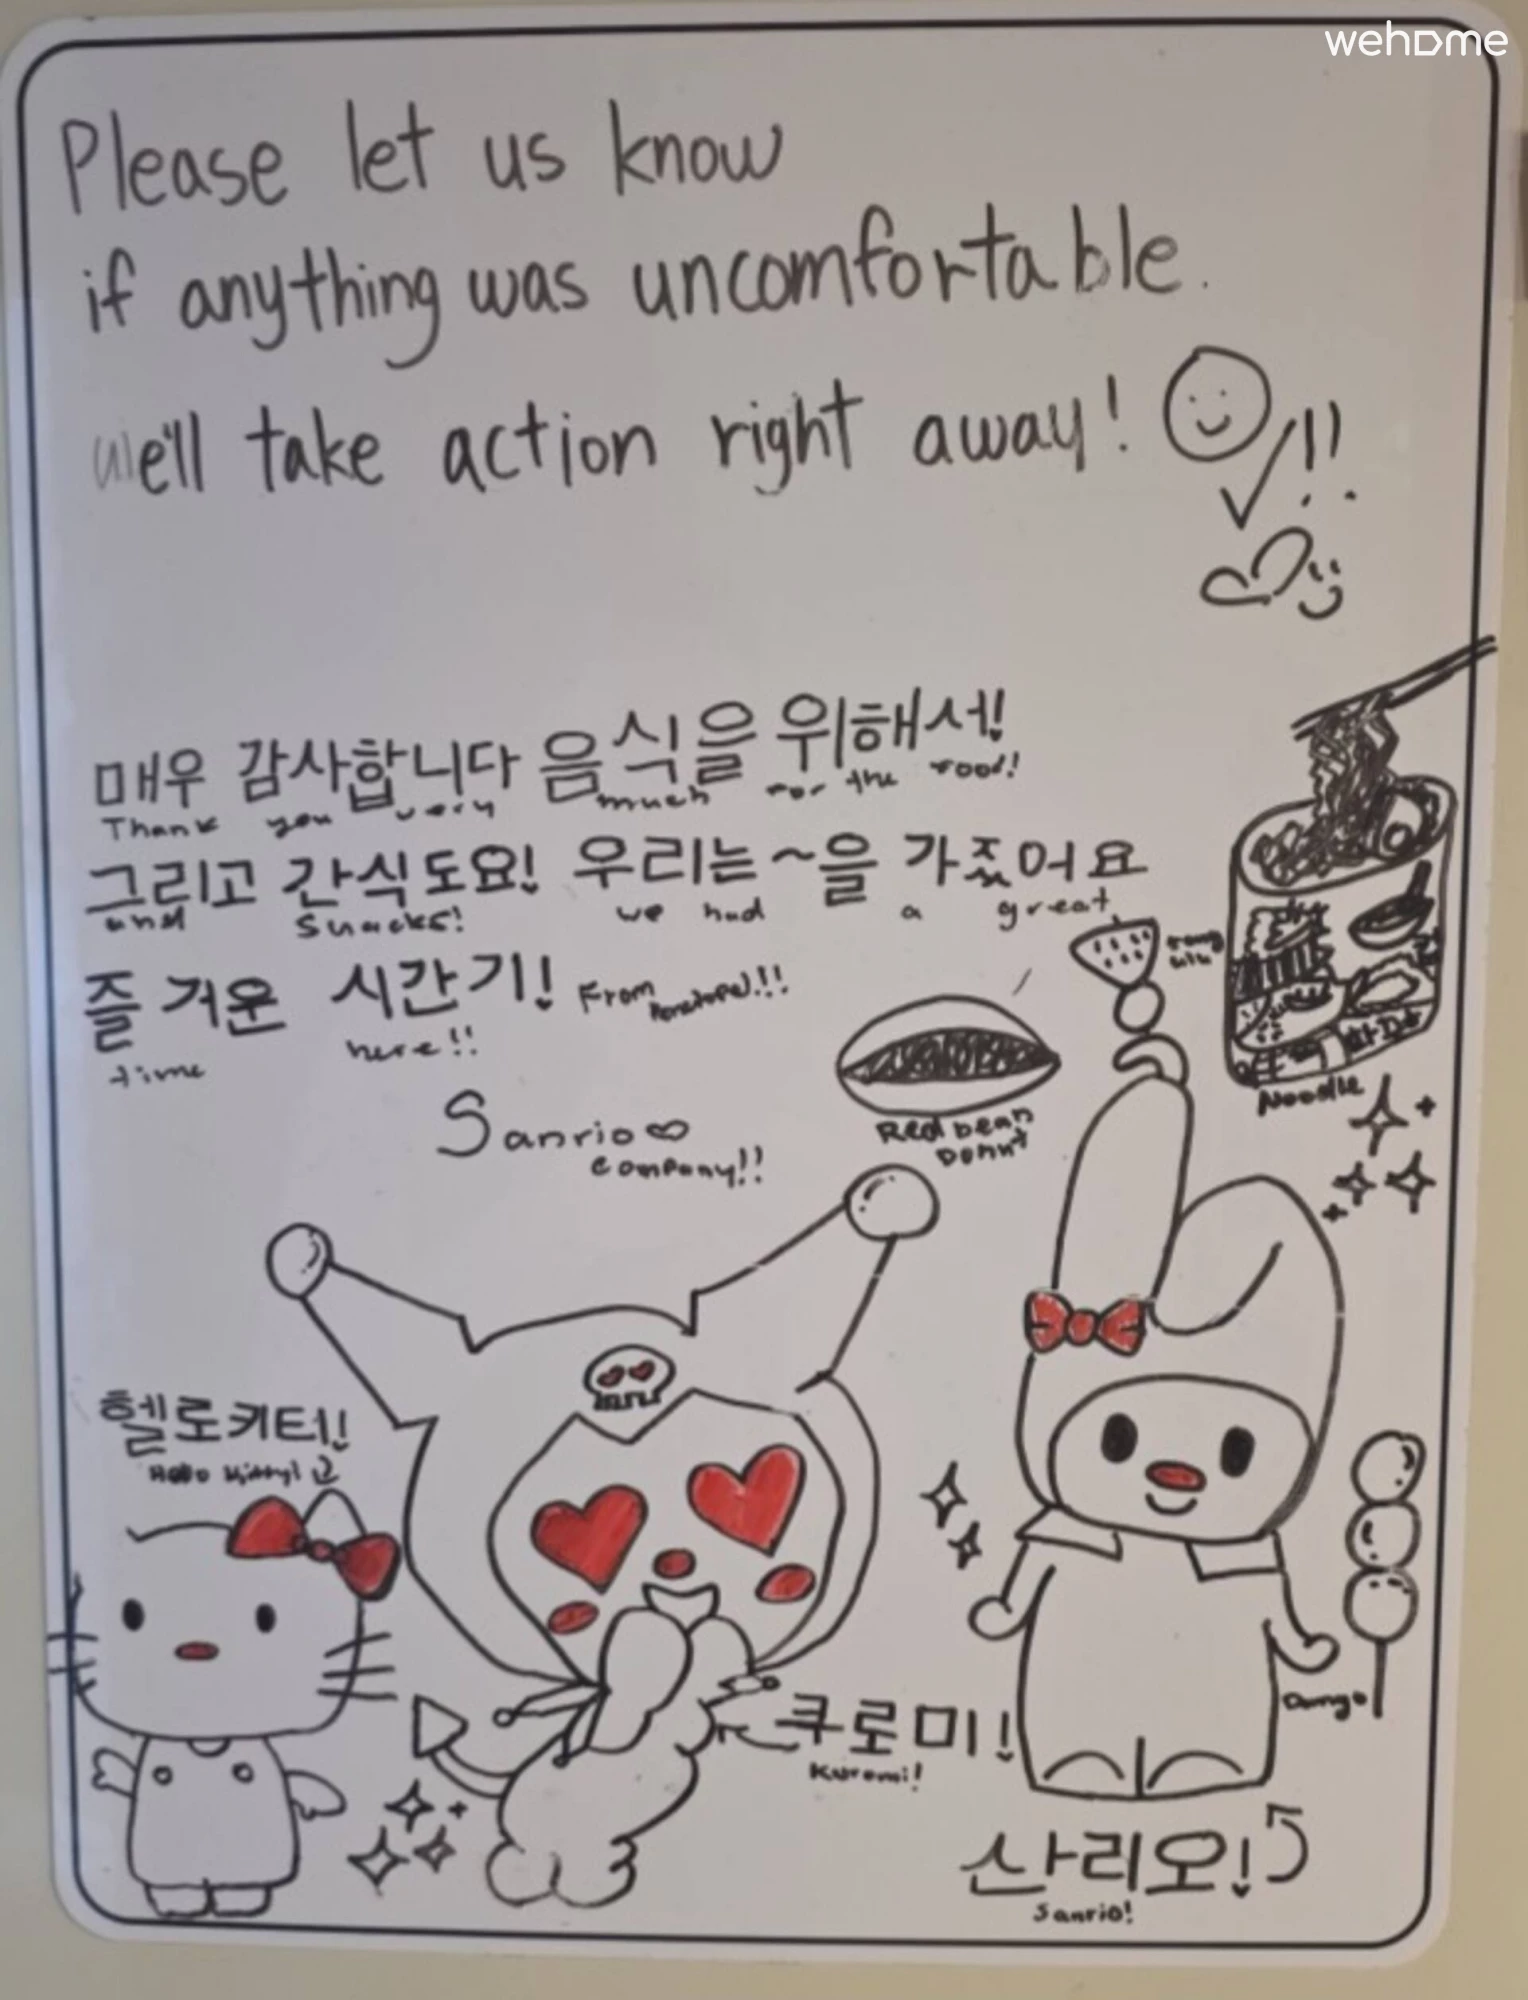 wehome
Please let us know
if anything was uncomfortable.
we'll take action right away!
매우 감사합니다 음식을 위해서!
Thank you very much for the food!
그리고 간식도요! 우리는 ~을 가졌어요
and snacks! we had a great
즐거운 시간기! From
time here!!
Sanrio
company!!
Red bean
Donut
Noodle
헬로키티!!
Hello Kitty!
쿠로미!
Kuromi!
Dango
산리오!
Sanrio!